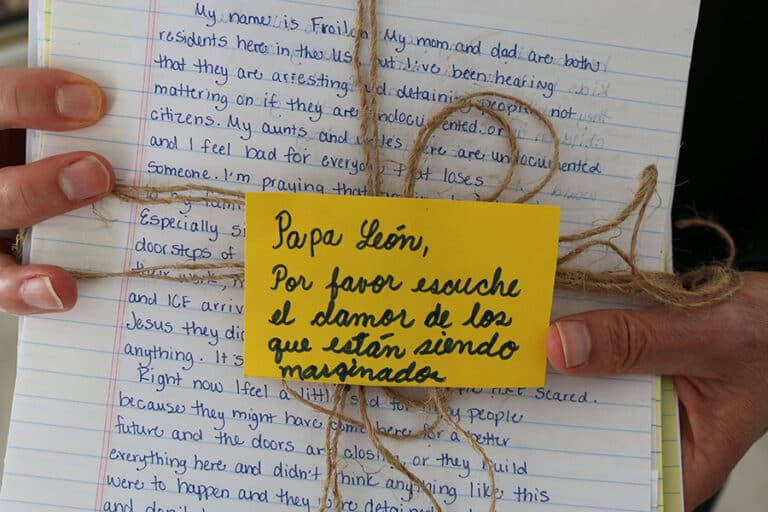 My name is Froilan My mom and dad are both
residents here in the US, but I've been hearing
that they are arresting and detaining people not
mattering on if they are undocumented or
citizens. My aunts and uncles here are undocumented
and I feel bad for everyone that loses
someone. I'm praying that
Especially
doorsteps of
their work,
and ICE
Jesus they
anything. It's
scared.
Right now I feel a little sad for many people
because they might have come here for a better
future and the doors are closing or they build
everything here and didn't think anything like this
were to happen and they were detained
and
Papa León,
Por favor escuche
el clamor de los
que están siendo
marginados